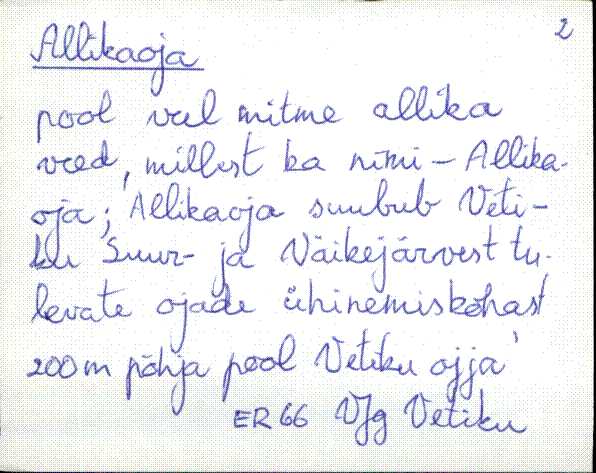 2
Allikaoja
pool veel mitme allika
veed, millest ka nimi - Allika-
oja; Allikaoja suubub Veti-
ku Suur- ja Väikejärvest tu-
levate ojade ühinemiskohast
200 m põhja pool Vetiku ojja
ER 66 VJg Vetiku